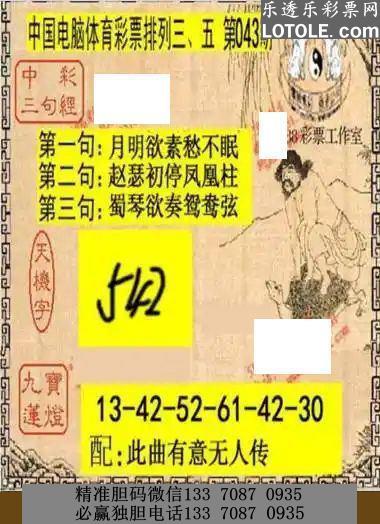 乐透乐彩票网
LOTOLE.COM
中国电脑体育彩票排列三、五 第043期
中彩
三句經
彩票工作室
第一句:月明欲素愁不眠
第二句:赵瑟初停凤凰柱
第三句:蜀琴欲奏鸳鸯弦
天機字
542
九寶
蓮燈
13-42-52-61-42-30
配:此曲有意无人传
精准胆码微信133 7087 0935
必赢独胆电话133 7087 0935